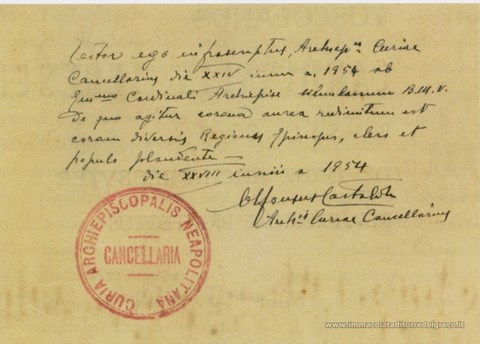 Testor ego infrascriptus, Archiep.lis Curiae
Cancellarius die XXIV iunii a. 1954 ab
Em.mo Cardinali Archiepiscopo simulacrum B.M.V.
de quo agitur corona aurea redimitum est
coram diversis Regionis Episcopis, clero et
populo plaudente
die XXVIII iunii a 1954
Alfonsus Castaldo
Arch.is Curiae Cancellarius
CURIA ARCHIEPISCOPALIS NEAPOLITANA
CANCELLARIA
www.limmacolataditorredelgreco.it